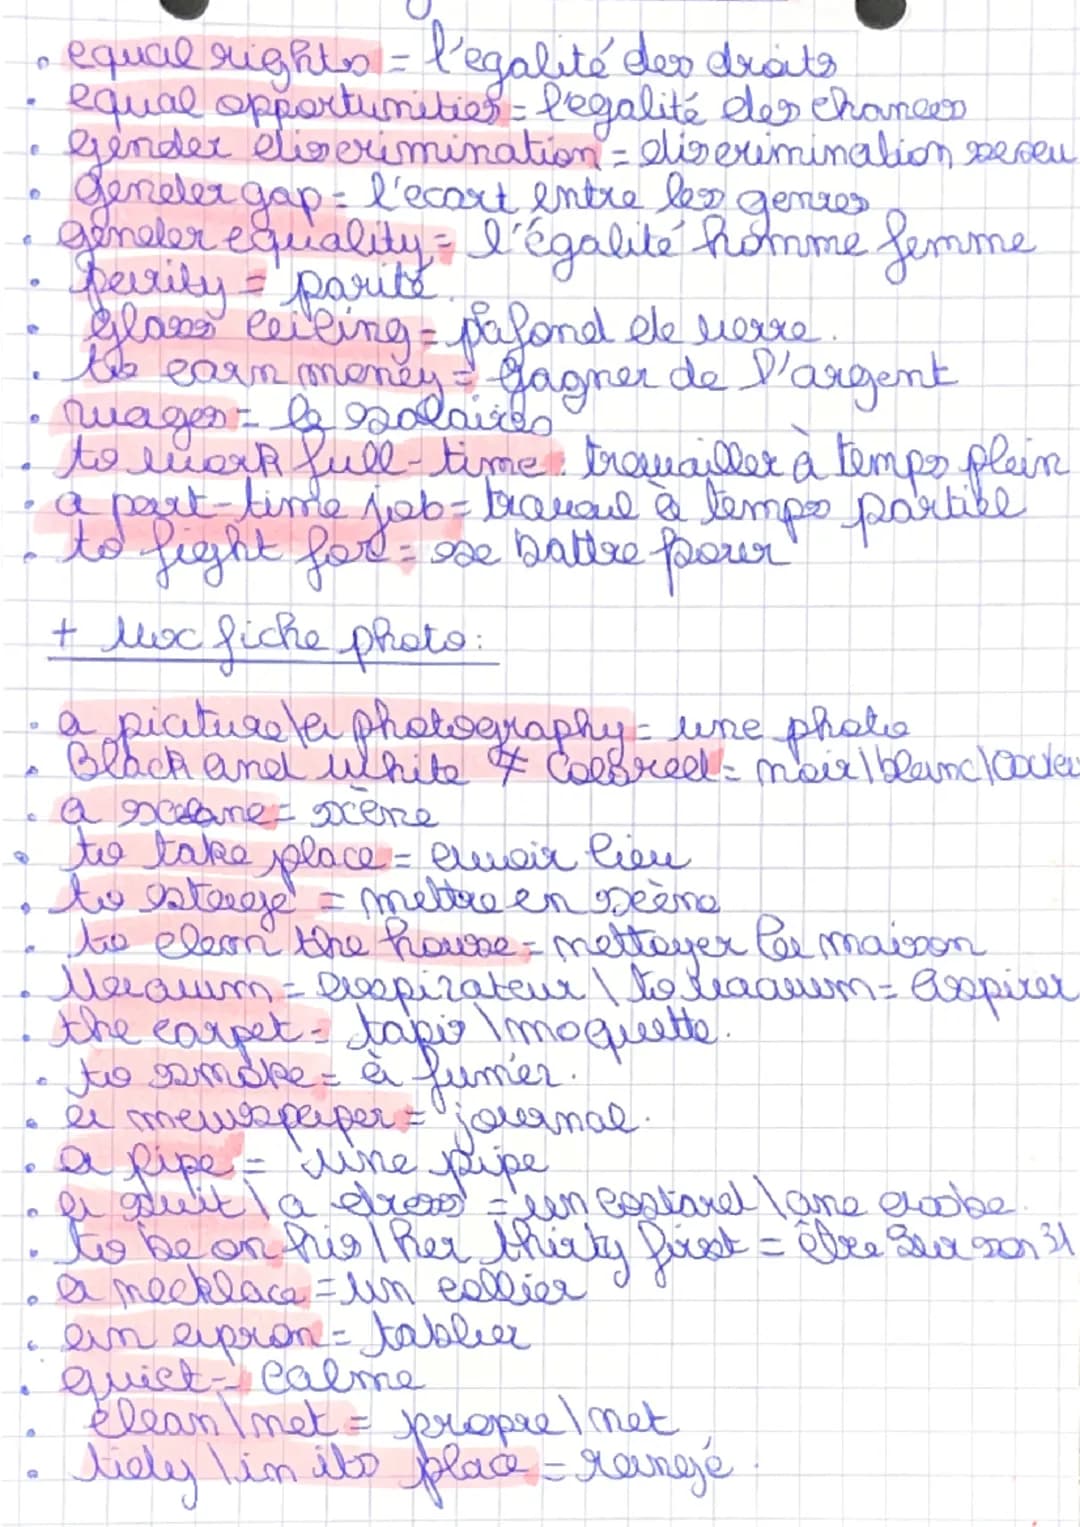 • equal rights = l'egalité des droits
• equal opportunities = l'egalité des chances
• gender discrimination = discrimination sexeu
• gender gap = l'ecart entre les genres
• gender equality = l'égalité homme femme
• parity = parité.
• glass ceiling = pafond de verre.
• to earn money = gagner de l'argent
• wages = le salaires
• to work full-time : travailler à temps plein
• a part-time job = travail à temps partiel
• to fight for = se battre pour
+ voc fiche photo :
• a picture/a photography = une photo
• Black and white ≠ Colored = noir\blanc\Couleu
• a sceane = scène
• to take place = avoir lieu
• to stage = mettre en scène
• to clean the house = nettoyer la maison
• Vacuum = aspirateur \ to vacuum = aspirer
• the carpet = tapis \ moquette.
• to smoke = à fumer.
• a newspaper = journal.
• a pipe = une pipe
• a suit \ a dress = un costard \ une robe.
• to be on his \ her thirty first = être sur son 31
• a necklace = un collier
• an apron = tablier
• quiet = calme
• clean \ net = propre \ net
• tidy \ in its place = rangé.